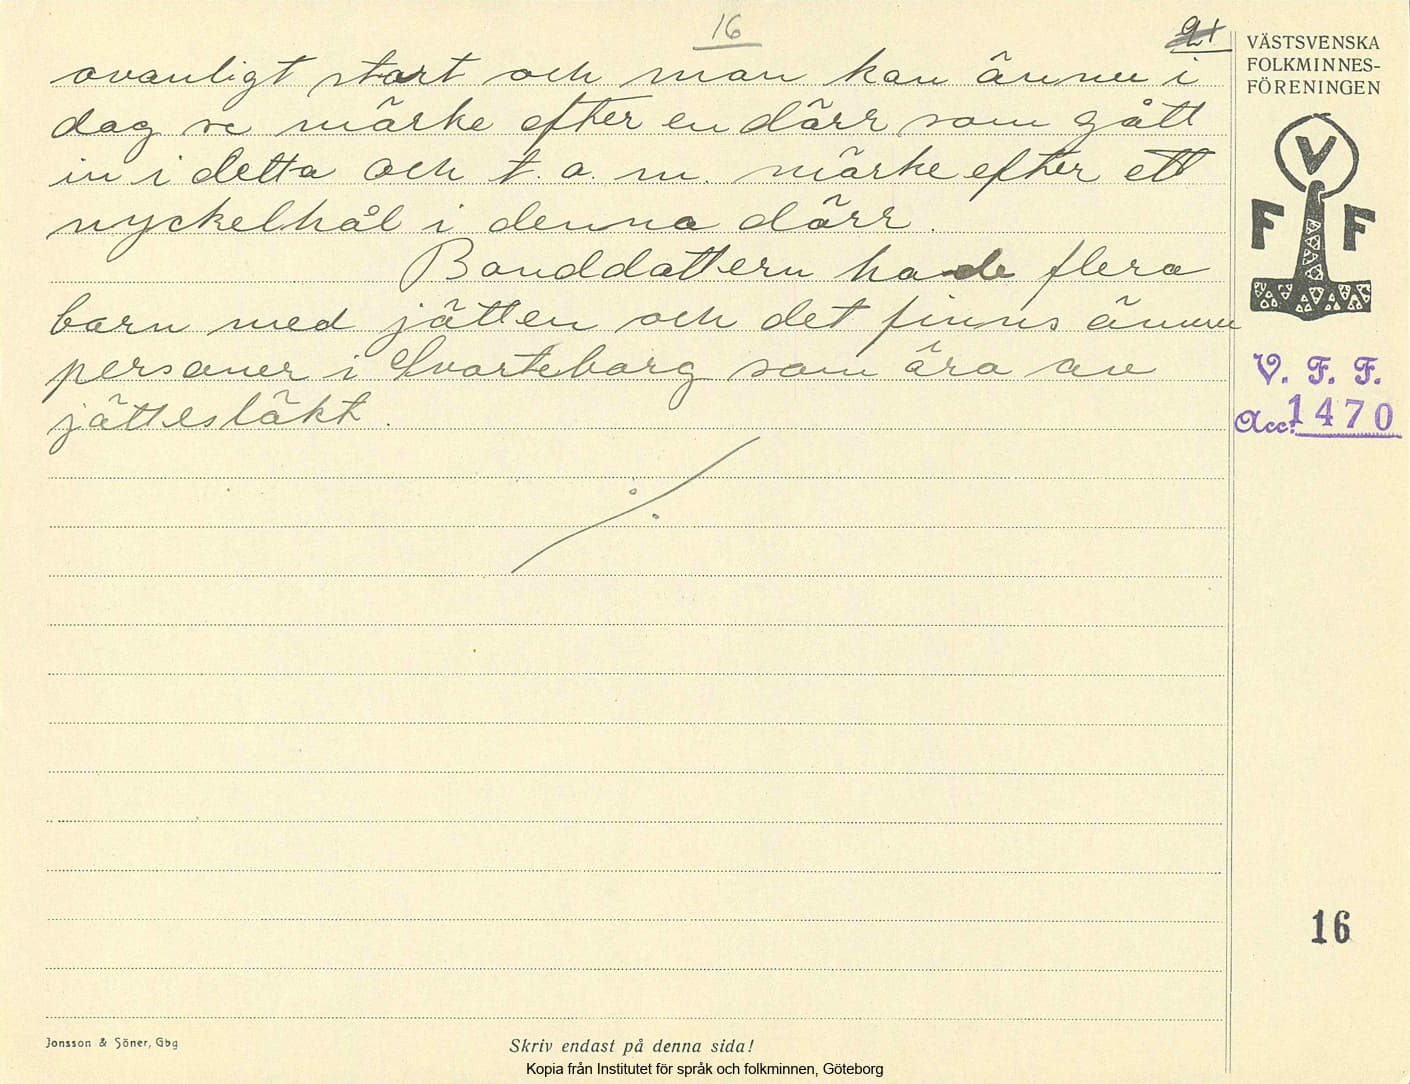 16
ovanligt stort och man kan ännu i
dag se märke efter en dörr som gått
in i detta och t.o.m. märke efter ett
nyckelhål i denna dörr.
Bonddottern hade flera
barn med jätten och det finns ännu
personer i Svarteborg som äro av
jättesläkt.
VÄSTSVENSKA
FOLKMINNES-
FÖRENINGEN
V
F F
V. F. F.
Acc. 1470
16
Jonsson & Söner, Gbg
Skriv endast på denna sida!
Kopia från Institutet för språk och folkminnen, Göteborg